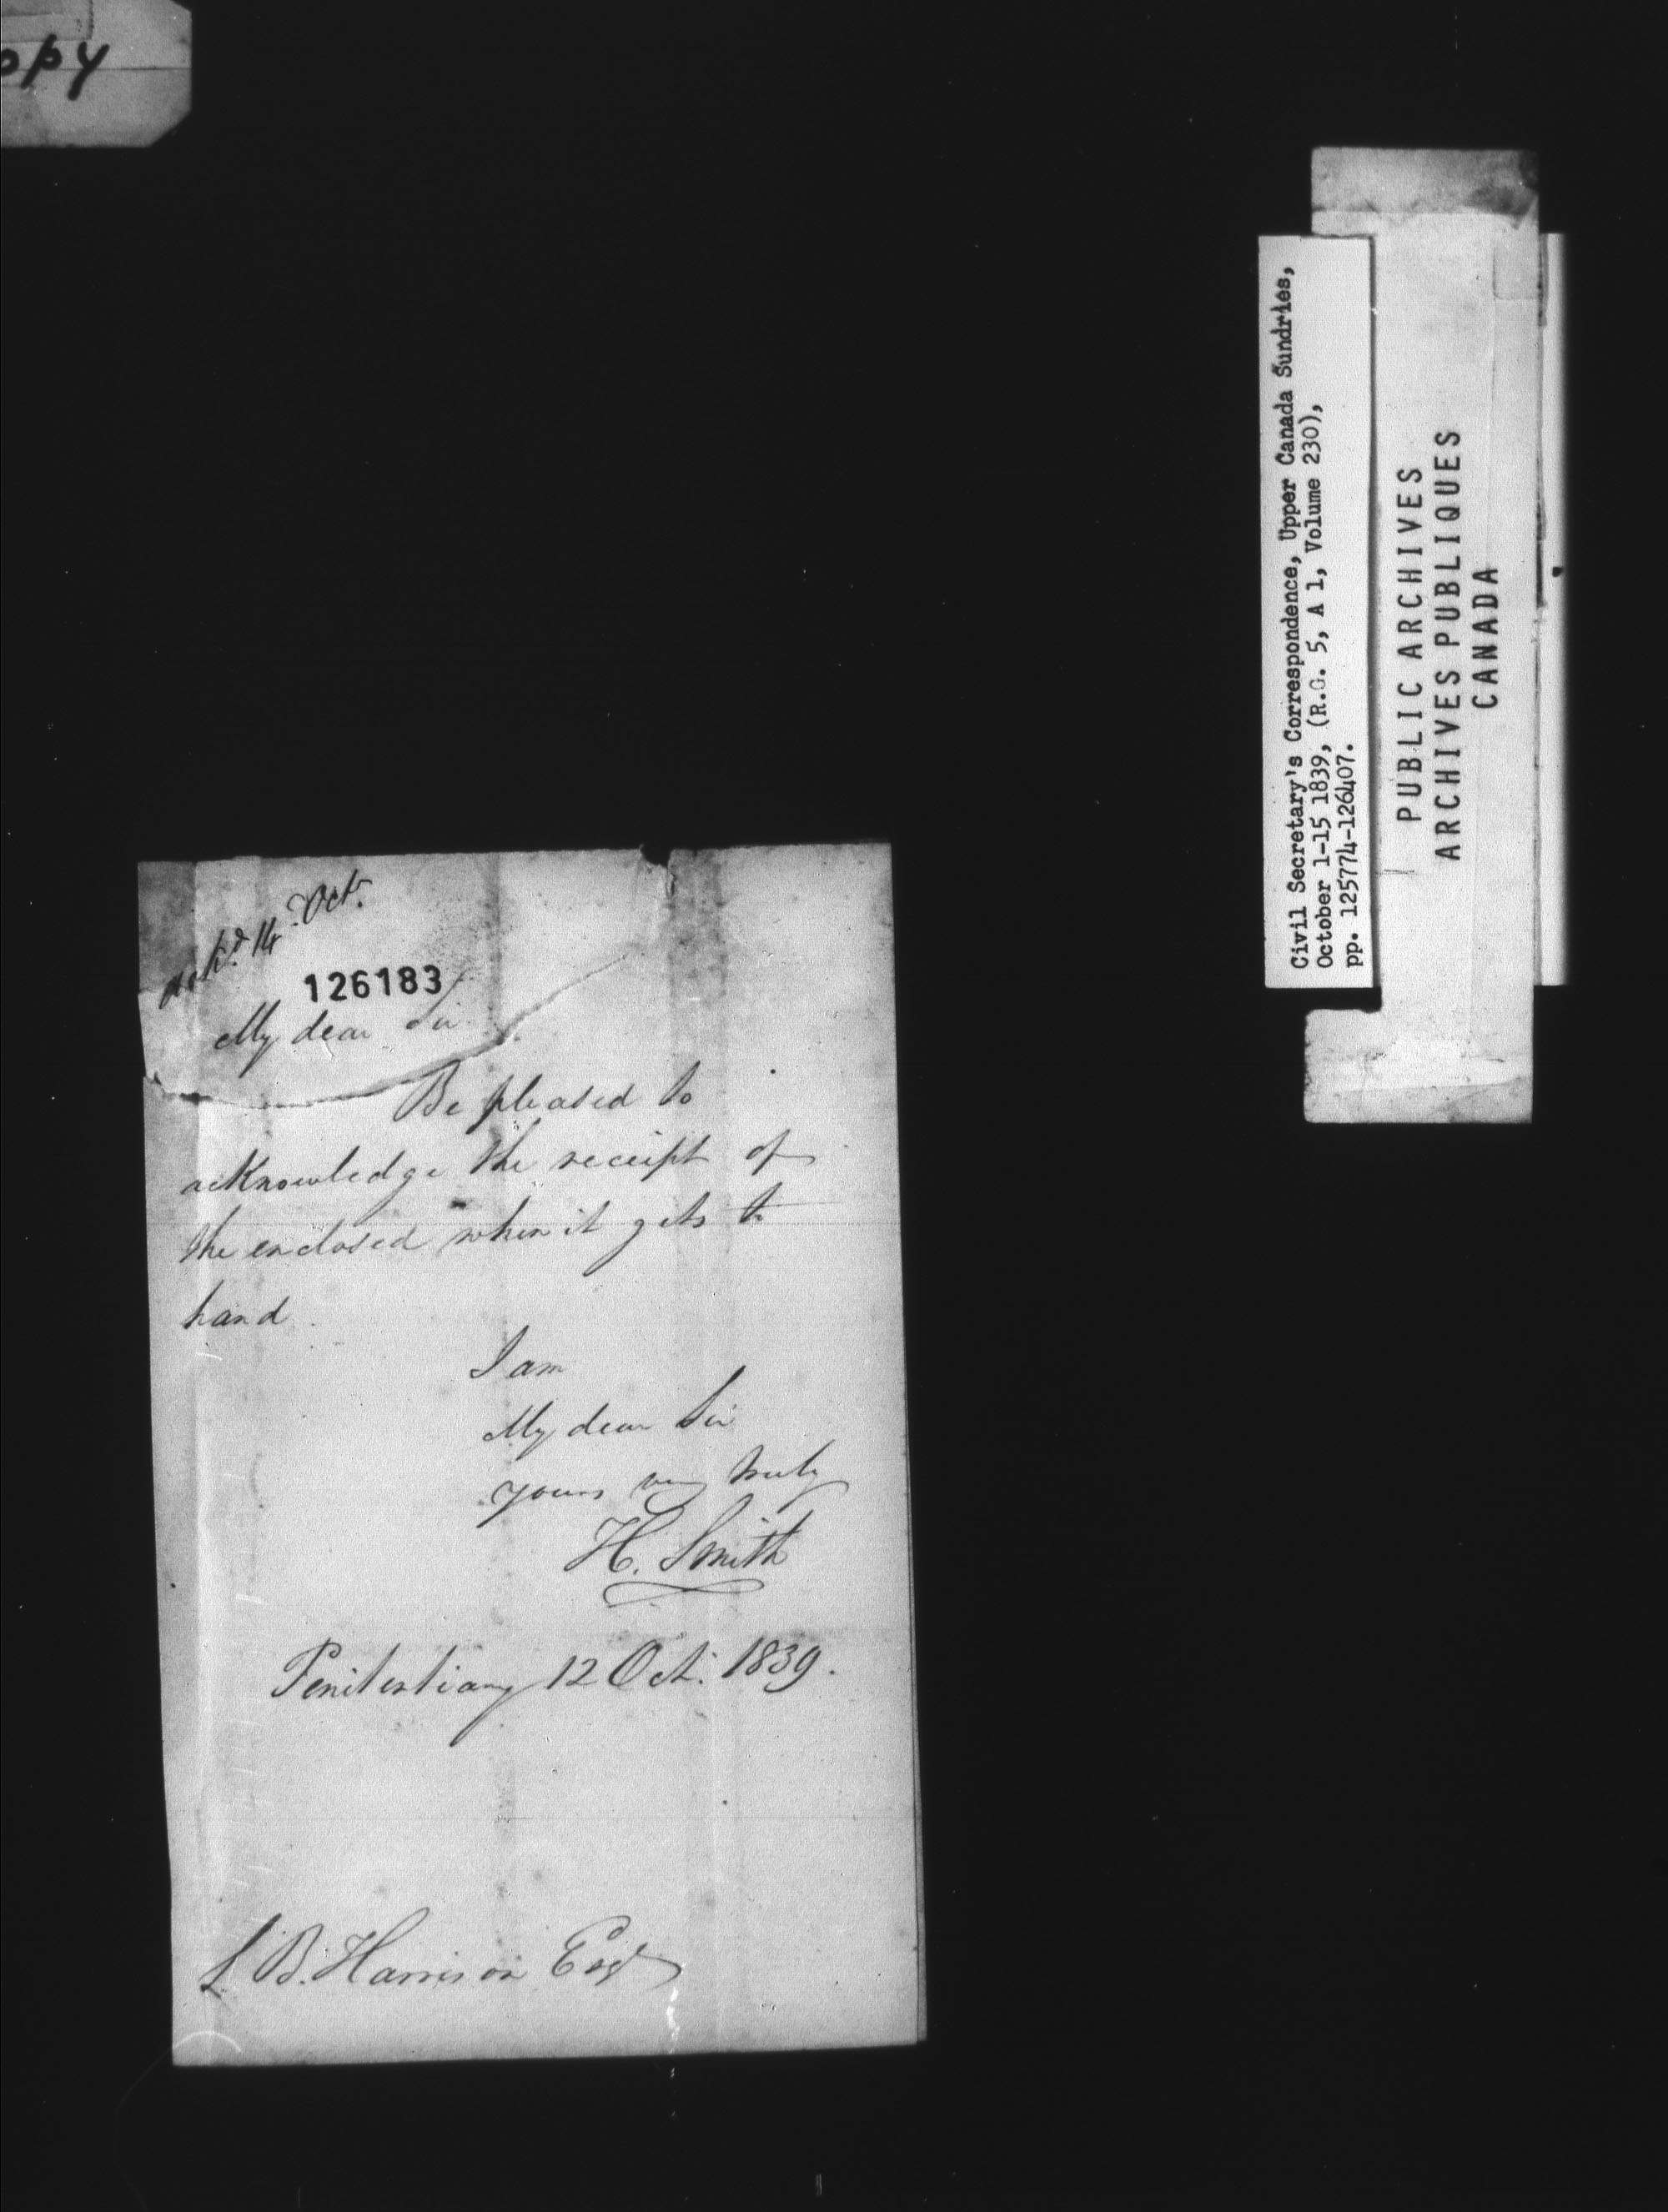 opy
Civil Secretary's Correspondence, Upper Canada Sundries,
October 1-15 1839, (R.G. 5, A 1, Volume 230),
pp. 125774-126407.
PUBLIC ARCHIVES
ARCHIVES PUBLIQUES
CANADA
ackd. 14 Oct.
126183
My dear Sir
Be pleased to
acknowledge the receipt of
the enclosed when it gets to
hand
I am
My dear Sir
yours very truly
H. Smith
Penitentiary 12 Oct. 1839.
S. B. Harrison Esqr